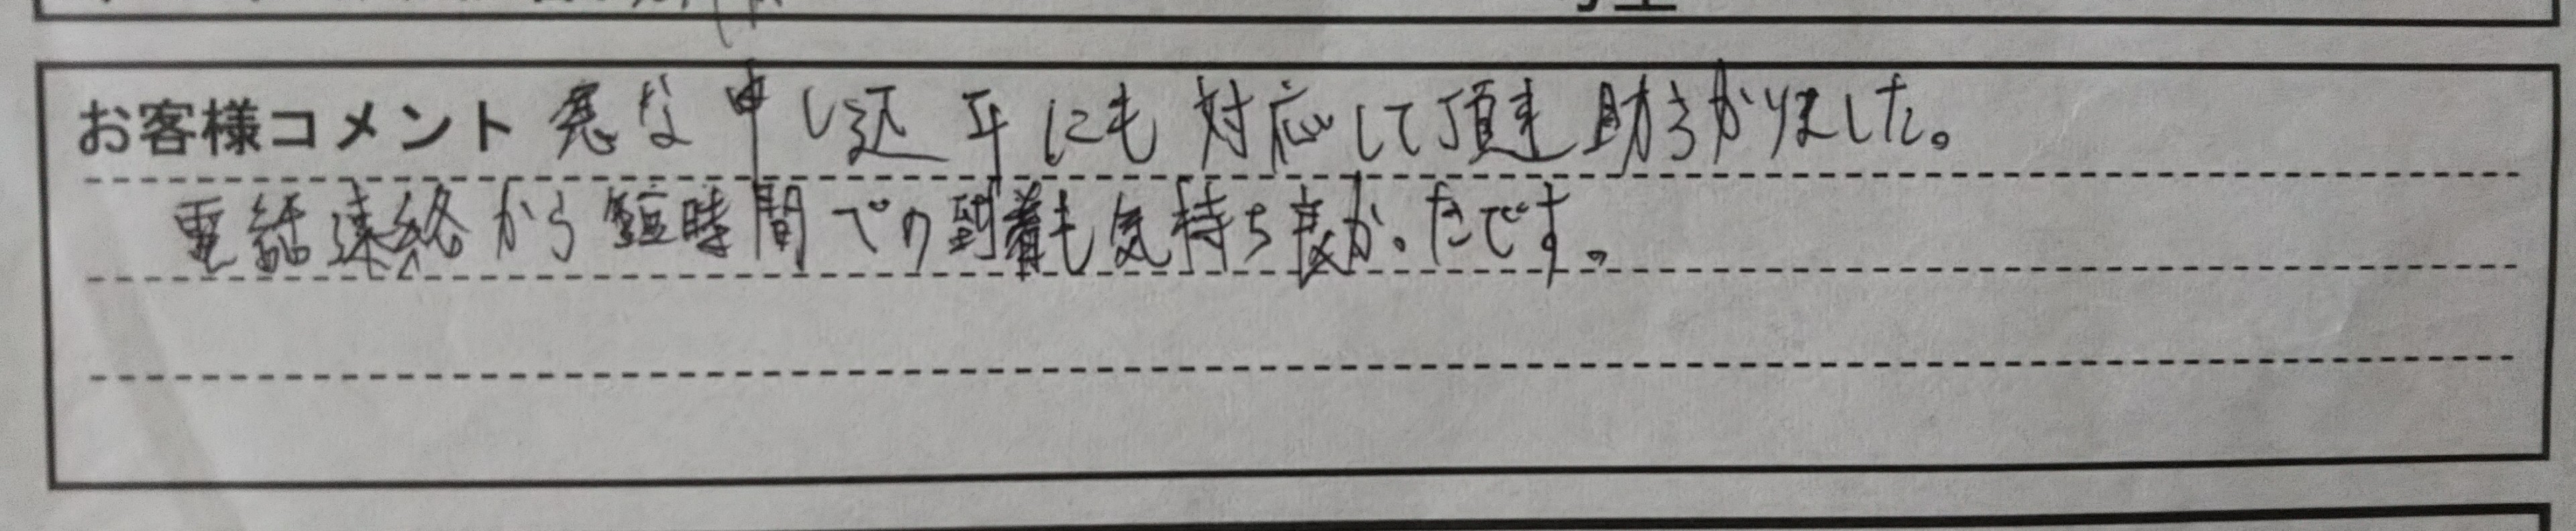 お客様コメント 急な申し込みにも対応して頂き助かりました。
電話連絡から短時間での到着も気持ち良かったです。